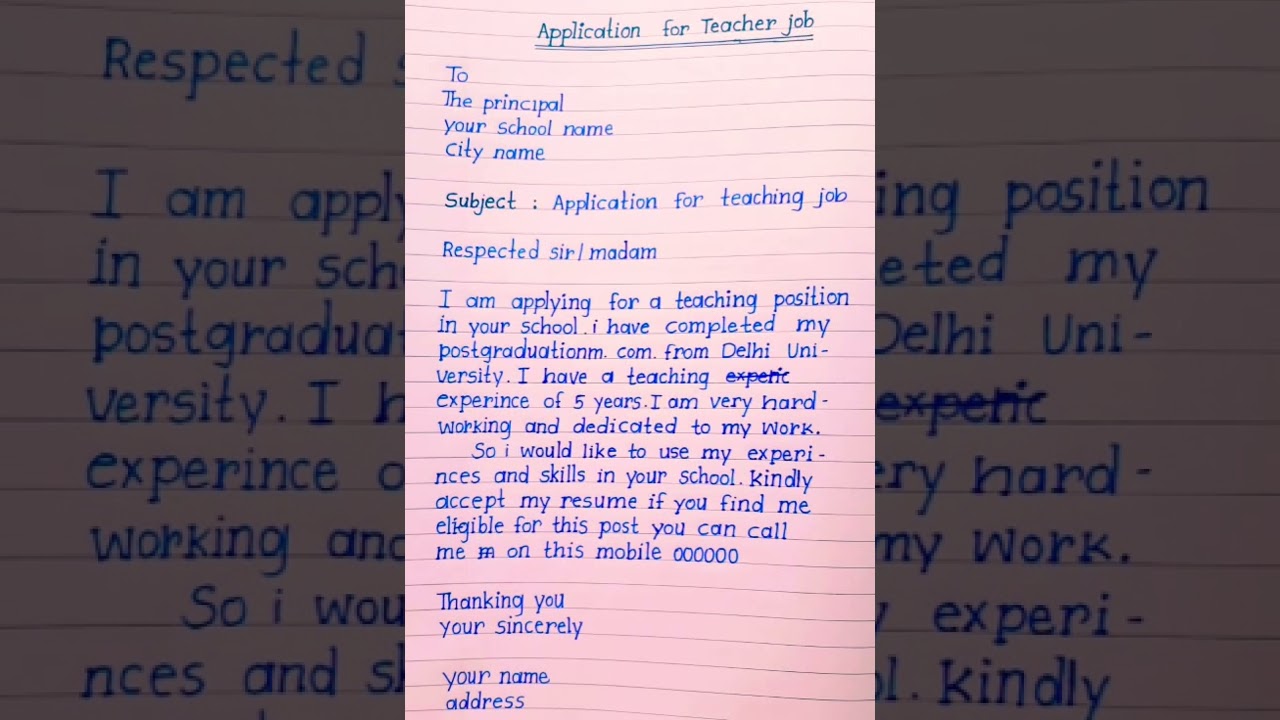 Application for Teacher job
To
The principal
your school name
City name
Subject : Application for teaching job
Respected sir/madam
I am applying for a teaching position
in your school. i have completed my
postgraduationm. com. from Delhi Uni-
versity. I have a teaching experic
experince of 5 years. I am very hard-
working and dedicated to my work.
So i would like to use my experi-
nces and skills in your school. kindly
accept my resume if you find me
eligible for this post you can call
me m on this mobile 000000
Thanking you
your sincerely
your name
address